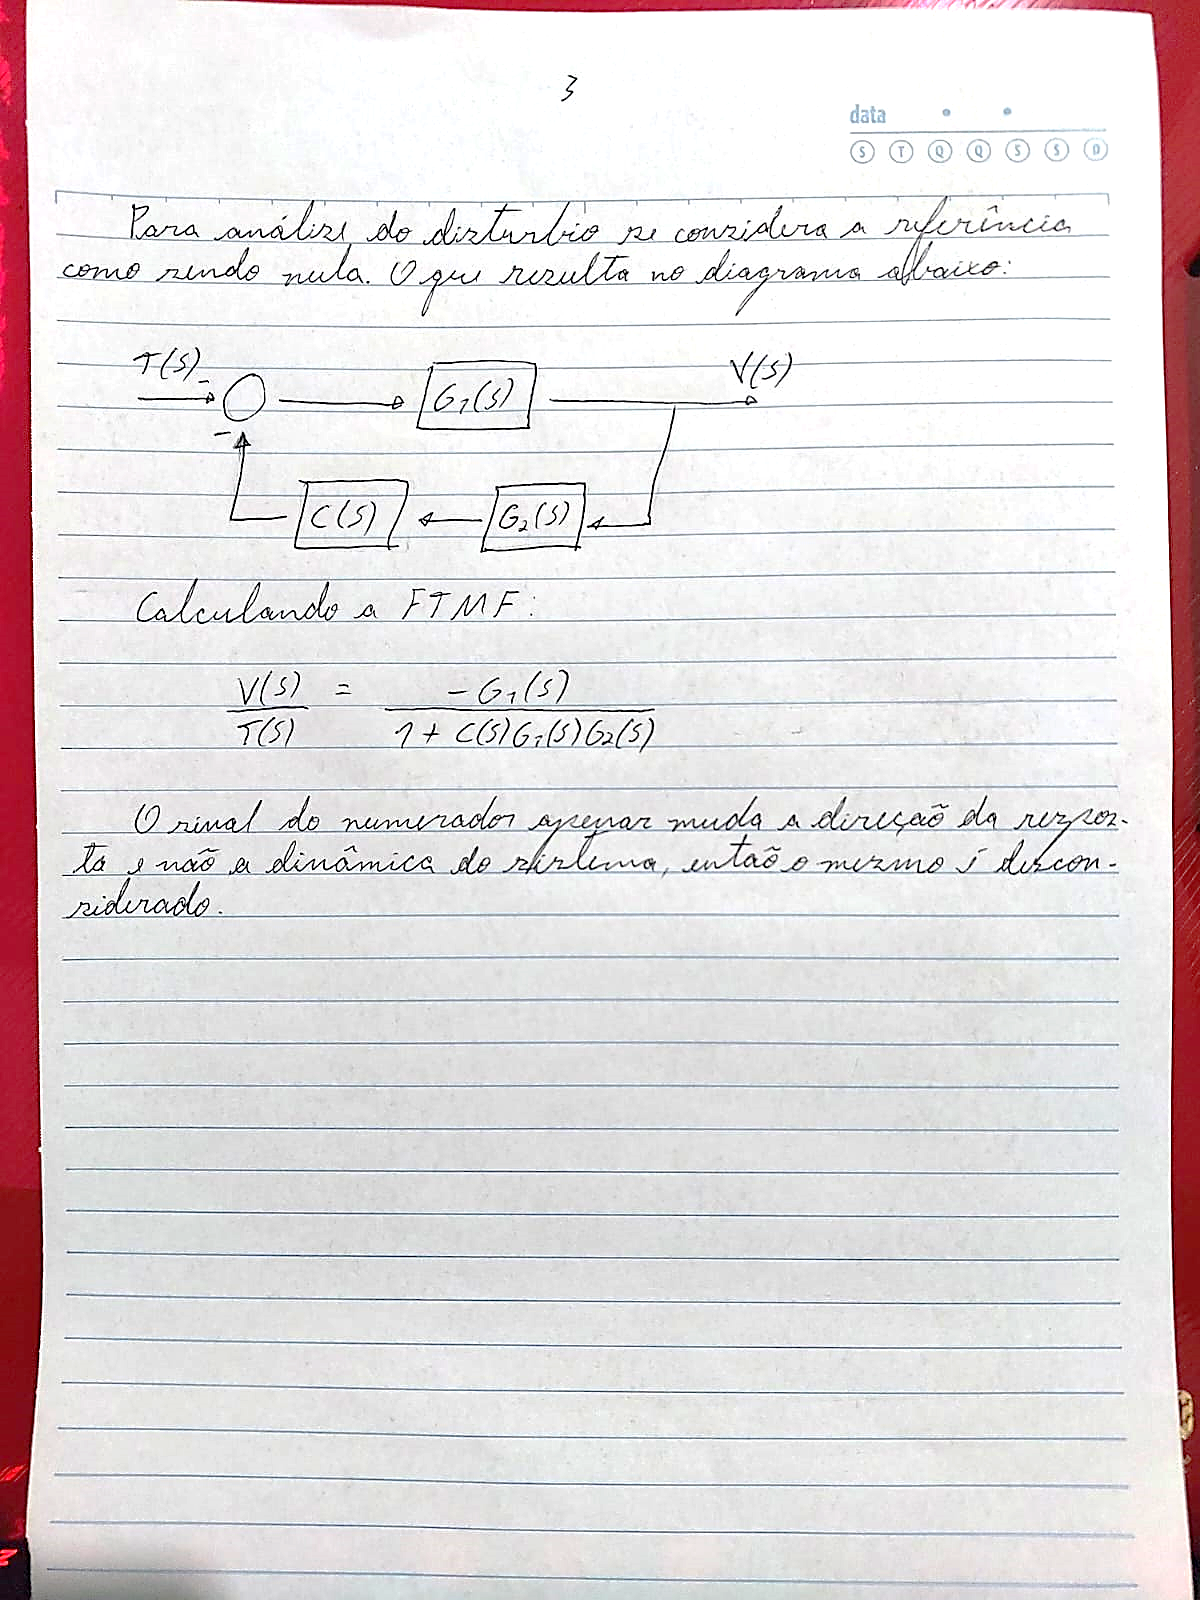 3
data
S T Q Q S S D
Para análise do distúrbio se considera a referência
como sendo nula. O que resulta no diagrama abaixo:
T(s) - G₁(s) V(s)
-
C(s) G₂(s)
Calculando a FTMF:
V(s) = -G₁(s)
T(s) 1 + C(s)G₁(s)G₂(s)
O sinal do numerador apenas muda a direção da respos-
ta e não a dinâmica do sistema, então o mesmo é descon-
siderado.